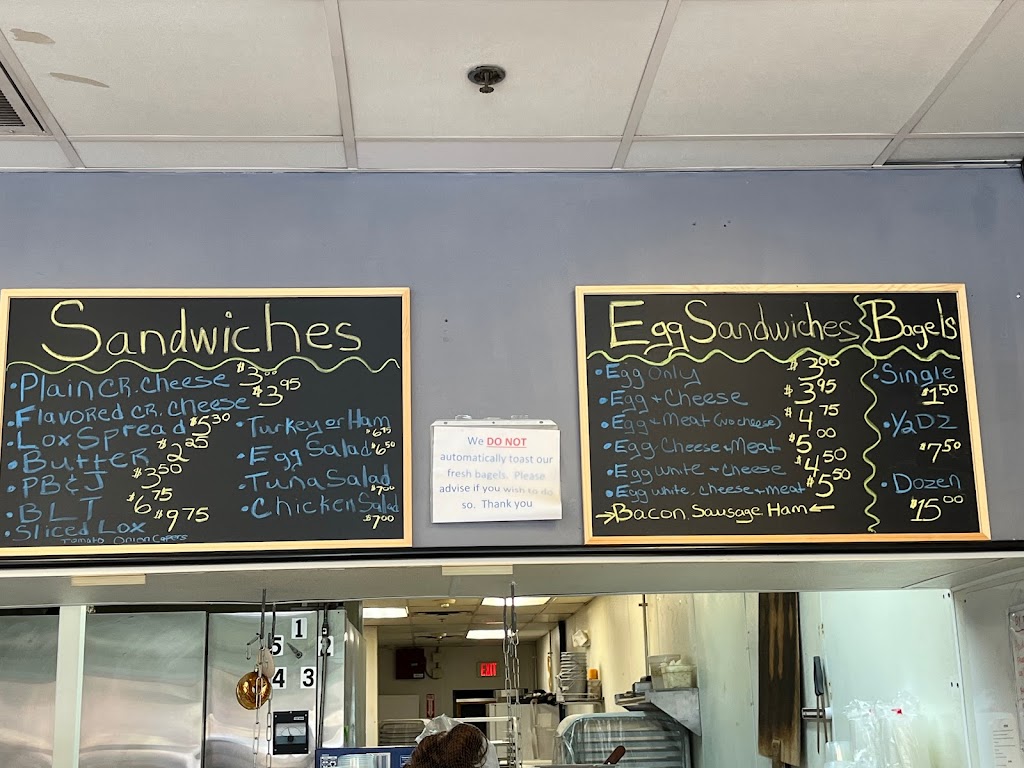 Sandwiches
• Plain CR. Cheese $3.00
• Flavored CR. Cheese $3.95
• Lox Spread $5.30
• Butter 2.25
• PB & J $3.50
• BLT $6.75
• Sliced Lox $9.75
Tomato Onion Capers
• Turkey or Ham $6.75
• Egg Salad $6.50
• Tuna Salad $7.00
• Chicken Salad $7.00
We DO NOT
automatically toast our
fresh bagels. Please
advise if you wish to do
so. Thank you
Egg Sandwiches
• Egg Only $3.00
• Egg + Cheese $3.95
• Egg + Meat (wo cheese) $4.75
• Egg Cheese + Meat $5.00
• Egg white + cheese $4.50
• Egg white, cheese + meat $5.50
→Bacon, Sausage, Ham←
Bagels
• Single $1.50
• 1/2 DZ $7.50
• Dozen $15.00
1
5 2
4 3
EXIT